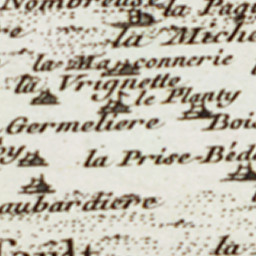 Nombreuse la Pag
re la Miche
la Maçonnerie
la Vrignette
le Planty
Germeliere Bois
la Prise-Béd
aubardiere
la